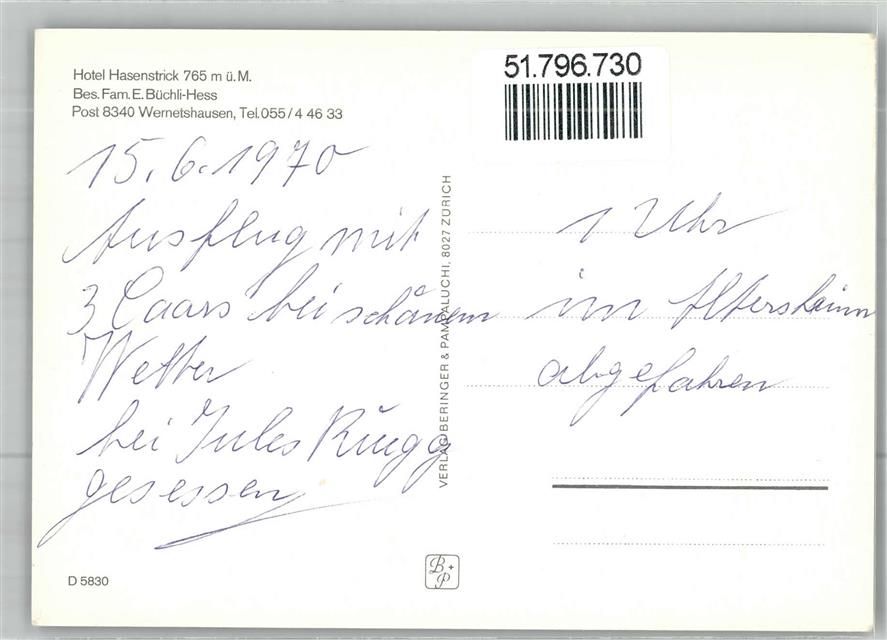 Hotel Hasenstrick 765 m ü.M.
Bes. Fam. E. Büchli-Hess
Post 8340 Wernetshausen, Tel. 055/4 46 33
51.796.730
15.6.1970
Ausflug mit
3 Caars bei schönem
Wetter
bei Jules Rüegg
gesessen
VERLAG BERINGER & PAMPALUCHI, 8027 ZÜRICH
1 Uhr
im Altersheim
abgefahren
D 5830
B + P